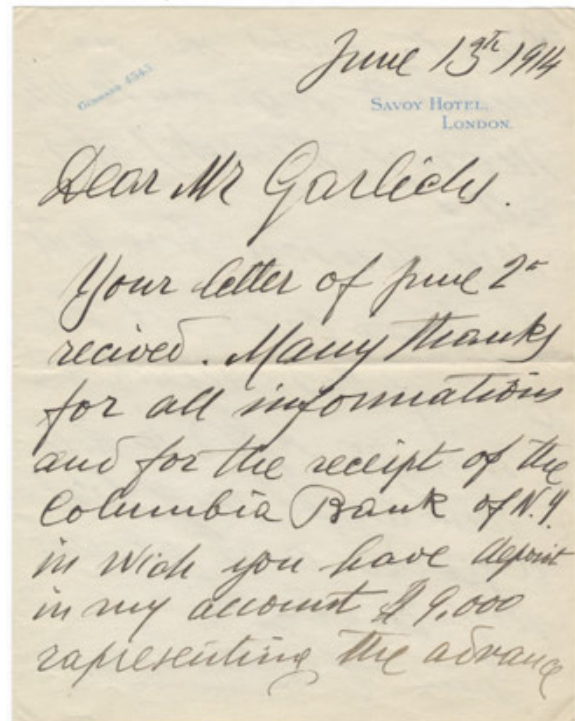 June 13th 1914
Gerrard 4343.
SAVOY HOTEL.
LONDON.
Dear Mr Garlichs.
Your letter of June 2
recived. Many thanks
for all informations
and for the receipt of the
Columbia Bank of N.Y.
in wich you have deposit
in my account $ 9,000
rapresenting the advance